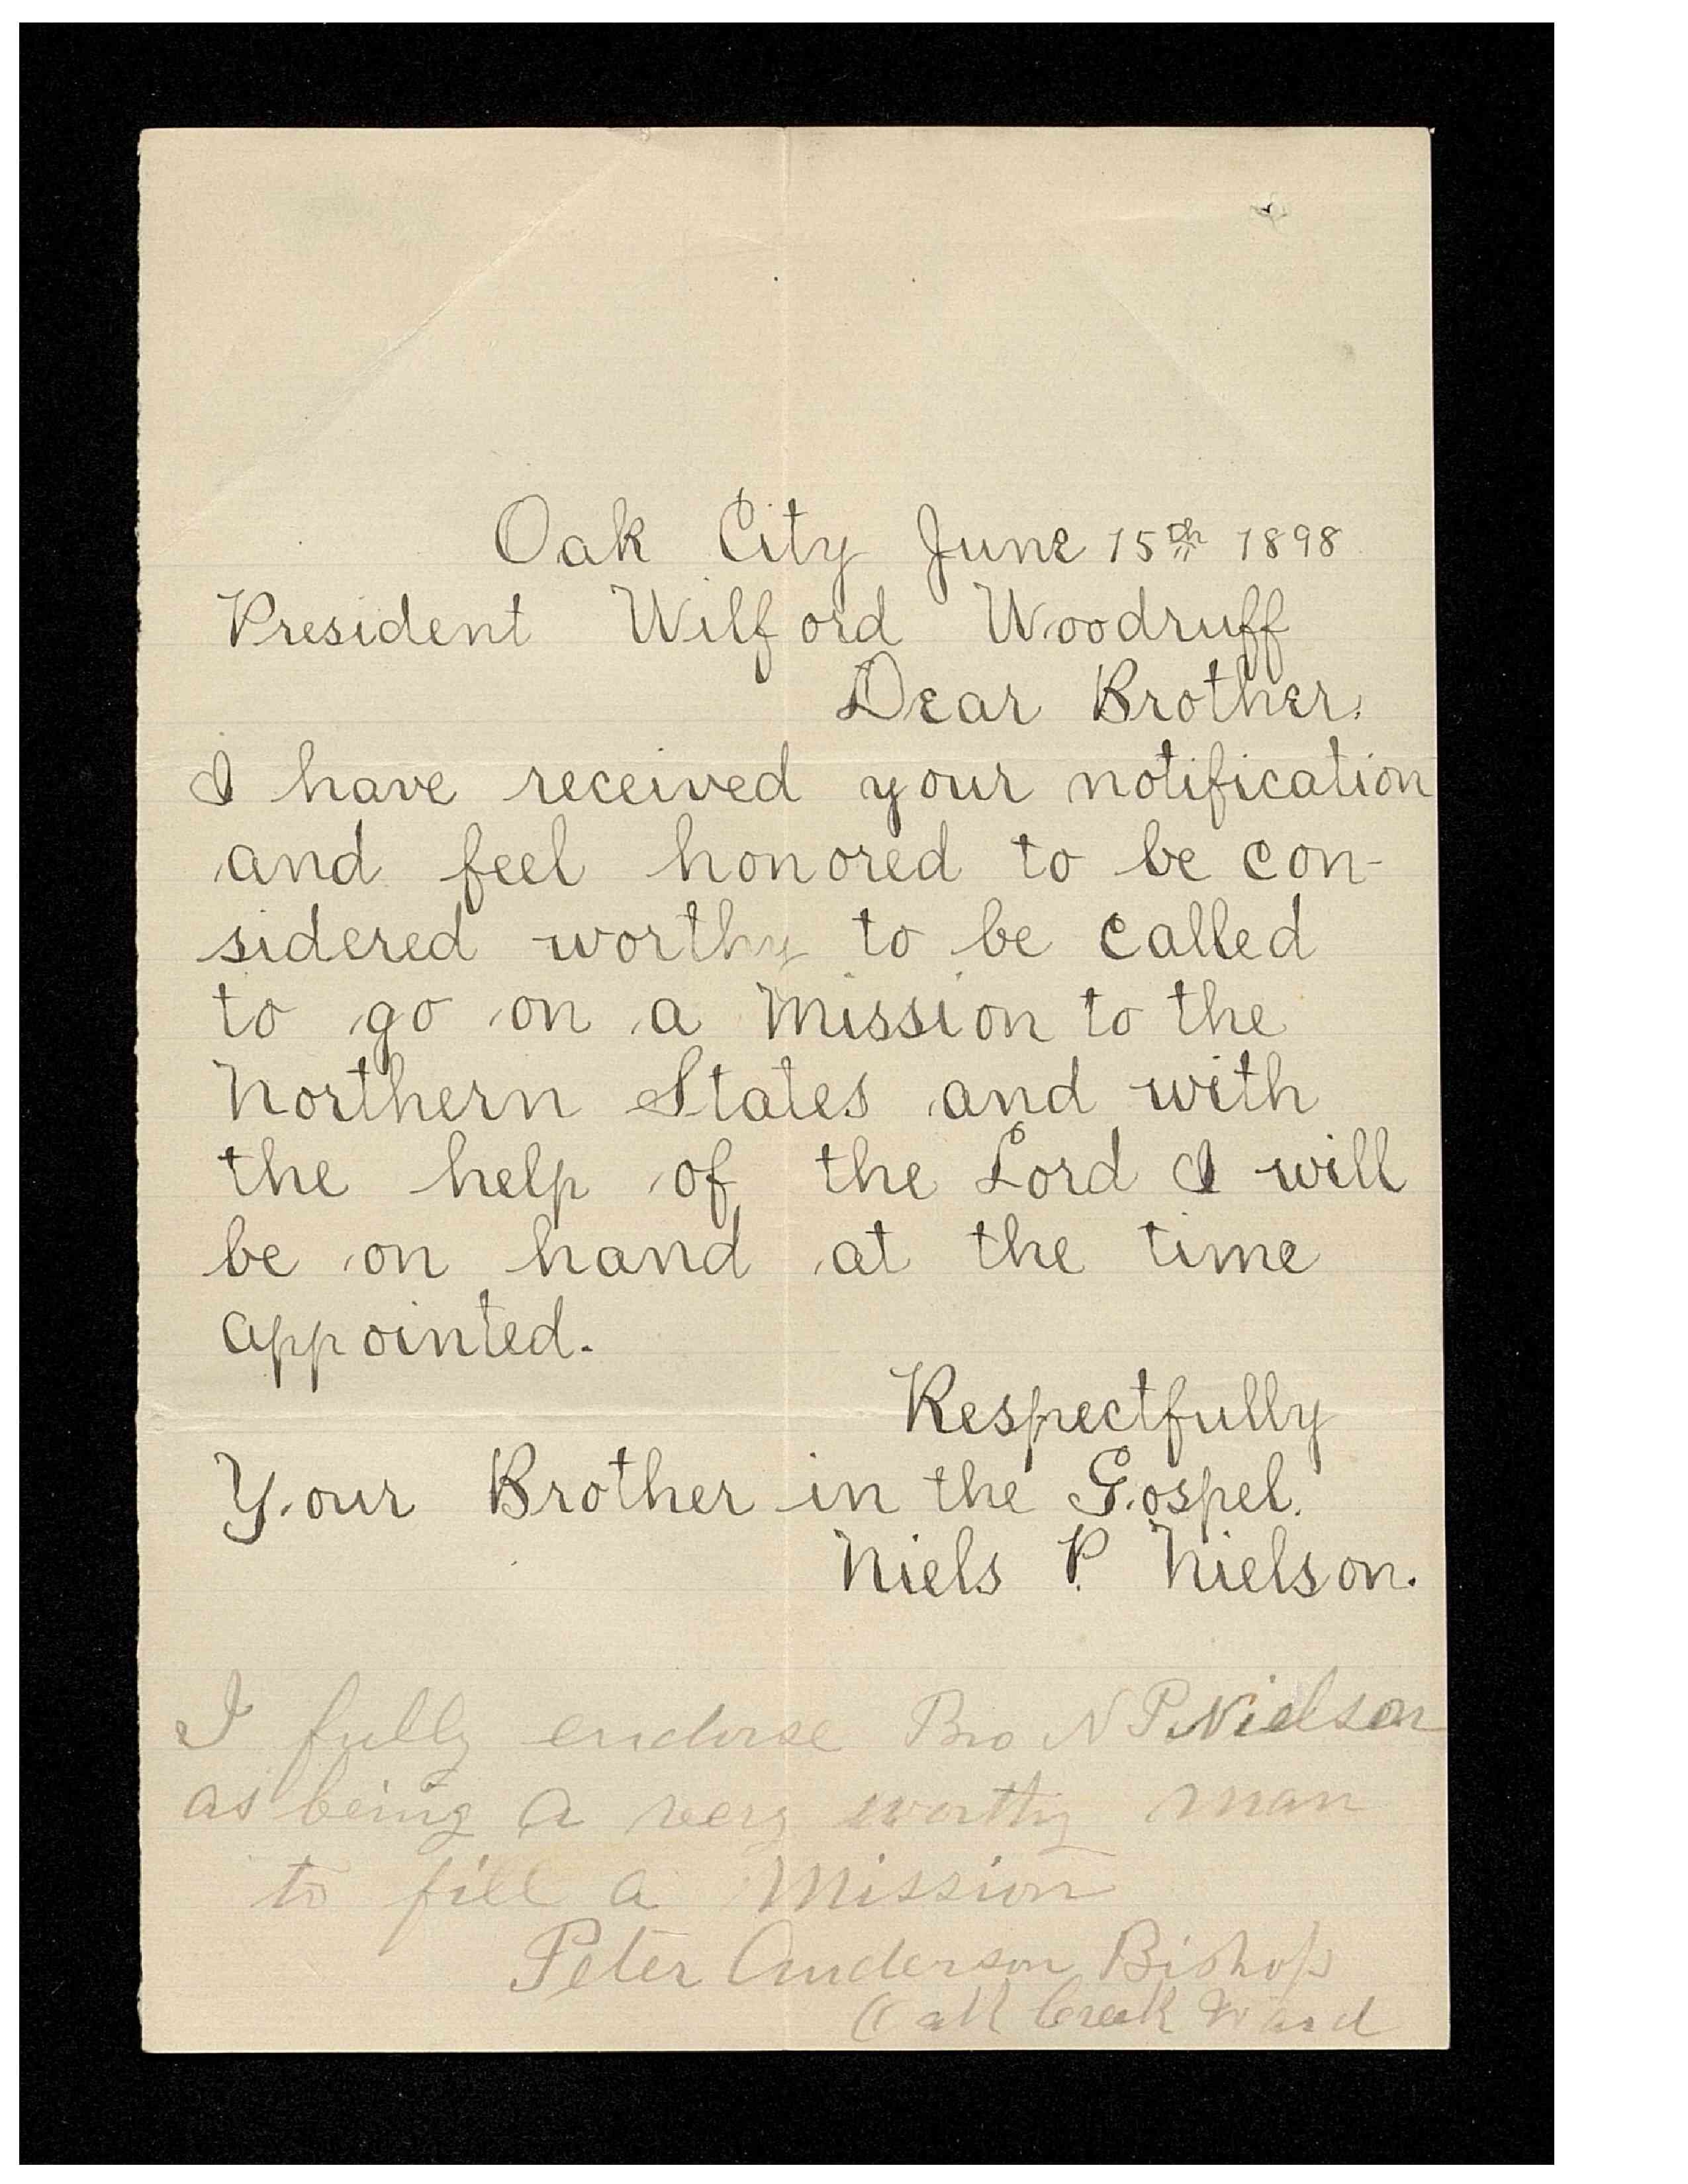 Oak City June 15th 1898
President Wilford Woodruff
Dear Brother.
I have received your notification
and feel honored to be con-
sidered worthy to be called
to go on a Mission to the
Northern States and with
the help of the Lord I will
be on hand at the time
appointed.
Respectfully
Your Brother in the Gospel.
Niels P. Nielson.
I fully endorse Bro N P Nielson
as being a very worthy man
to fill a Mission
Peter Anderson Bishop
Oak Creek Ward